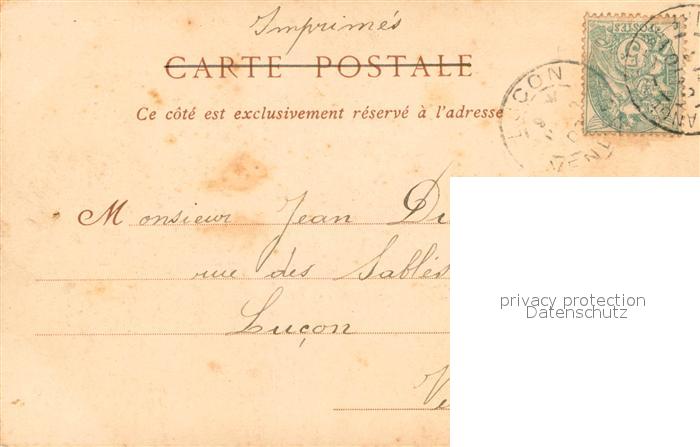 Imprimés
CARTE POSTALE
Ce côté est exclusivement réservé à l'adresse
LUÇON
POSTES
5
Monsieur Jean
rue des Sables
Luçon
privacy protection
Datenschutz